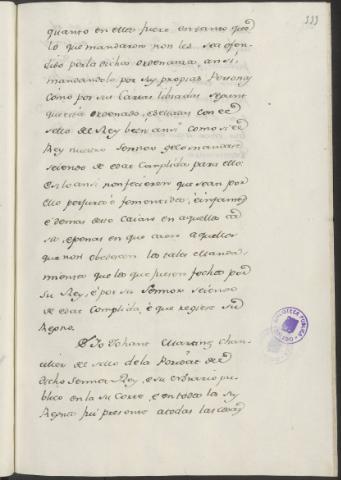 333
quanto en ellos fuere, en tanto que
lo que mandaron non les sea defen-
dido por la dicha ordenanza, ansi
mandandolo por su propias Personas
como por sus Cartas libradas segunt
que está ordenado, e selladas con el
sello del Rey bien ansi como si el
Rey nuestro Sennor gelo mandase
seiendo de edat Complida para ello:
e si lo ansi non ficieren que sean por
ello perjuros e fementidos, e infames
e demas desto caian en aquella
e penas en que caen aquellos
que non obedecen los tales manda-
mientos que los que fuesen fechos por
su Rey, é por su Sennor seiendo
de edat Complida, é que rigiese su
Regno.
Yo Johan Martinez Chan-
ciller del sello de la Poridat del
dicho Sennor Rey, e su Notario pu-
blico en la su Corte, e en todos los sus
Regnos fui presente a todas las cosas
BIBLIOTECA PUBLICA